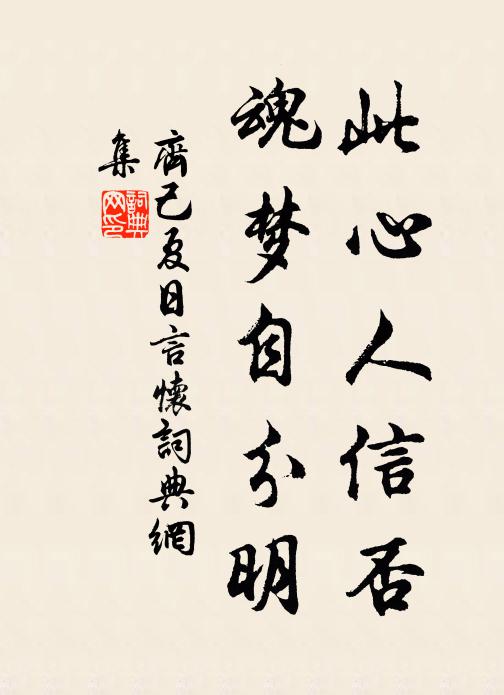 此心人信否
魂梦自分明
齊己夏日言懷詞典網
集
詞典
网印